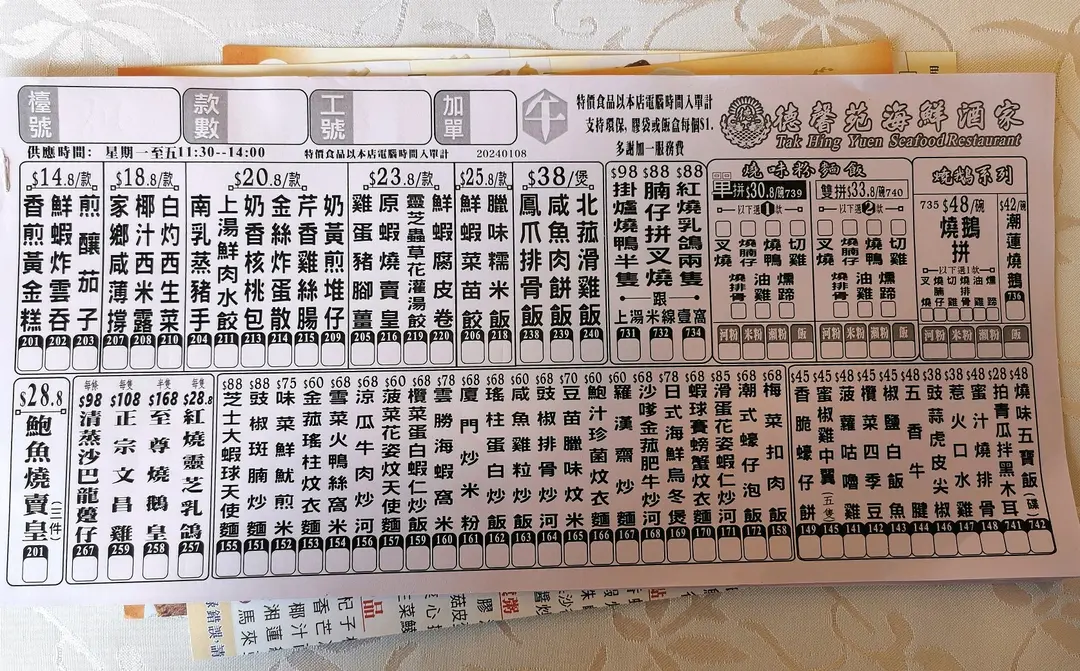 檯號
款數
工號
加單
午
特價食品以本店電腦時間入單計
支持環保, 膠袋或飯盒每個$1.
多謝加一服務費
德馨苑海鮮酒家
Tak Hing Yuen Seafood Restaurant
供應時間: 星期一至五11:30--14:00
特價食品以本店電腦時間入單計
20240108
$14.8/款
香煎黃金糕 201
鮮蝦炸雲吞 202
煎釀茄子 203
$18.8/款
家鄉咸薄撐 207
椰汁西米露 208
白灼西生菜 210
$20.8/款
南乳蒸豬手 204
上湯鮮肉水餃 211
奶香核桃包 213
金絲炸蛋散 214
芹香雞絲腸 215
奶黃煎堆仔 209
$23.8/款
雞蛋豬腳薑 205
原蝦燒賣皇 216
靈芝蟲草花灌湯餃 219
鮮蝦腐皮卷 220
$25.8/款
鮮蝦菜苗餃 206
臘味糯米飯 218
$38/煲
鳳爪排骨飯 238
咸魚肉餅飯 239
北菇滑雞飯 240
$98 掛爐燒鴨半隻 731
$88 腩仔拼叉燒 732
$88 紅燒乳鴿兩隻 734
跟
上湯米線壹窩
燒味粉麵飯
單拼$30.8/碗739
以下選1款
叉燒
燒腩仔
燒鴨
切雞
燒排骨
油雞
燻蹄
河粉 米粉 瀨粉 飯
雙拼$33.8/碗740
以下選2款
叉燒
燒腩仔
燒鴨
切雞
燒排骨
油雞
燻蹄
河粉 米粉 瀨粉 飯
燒鵝系列
735 $48/碗
燒鵝拼
以下選1款
叉燒
燒腩仔
切雞
燒排骨
油雞
燻蹄
$42/碗
潮蓮燒鵝 736
河粉 米粉 瀨粉 飯
$28.8
鮑魚燒賣皇(三件) 201
每條 $98 清蒸沙巴龍躉仔 267
每隻 $108 正宗文昌雞 259
半隻 $168 至尊燒鵝皇 258
每隻 $28.8 紅燒靈芝乳鴿 257
$88 芝士大蝦球天使麵 155
$88 豉椒斑腩炒麵 151
$75 味菜鮮魷煎米 152
$60 金菰瑤柱炆衣麵 153
$68 雪菜火鴨絲窩米 154
$68 涼瓜牛肉炒河 156
$60 菠菜花姿炆天使麵 157
$68 欖菜蛋白蝦仁炒飯 159
$78 雲勝海蝦窩米 160
$68 廈門炒米粉 161
$68 瑤柱蛋白炒飯 162
$60 咸魚雞粒炒飯 163
$68 豉椒排骨炒河 164
$70 豆苗臘味炆米 165
$60 鮑汁珍菌炆衣麵 166
$60 羅漢齋炒麵 167
$68 沙嗲金菰肥牛炒河 168
$78 日式海鮮烏冬煲 169
$68 蝦球賽螃蟹炆衣麵 170
$85 滑蛋花姿蝦仁炒河 171
$68 潮式蠔仔泡飯 172
$68 梅菜扣肉飯 158
$45 香脆蠔仔餅 149
$45 蜜椒雞中翼(五隻) 145
$45 菠蘿咕嚕雞 141
$45 欖菜四季豆 142
$45 椒鹽白飯魚 143
$48 五香牛腱 144
$38 豉蒜虎皮尖椒 146
$38 惹火口水雞 147
$48 蜜汁燒排骨 148
$28 拍青瓜拌黑木耳 741
$48 燒味五寶飯(碟) 742